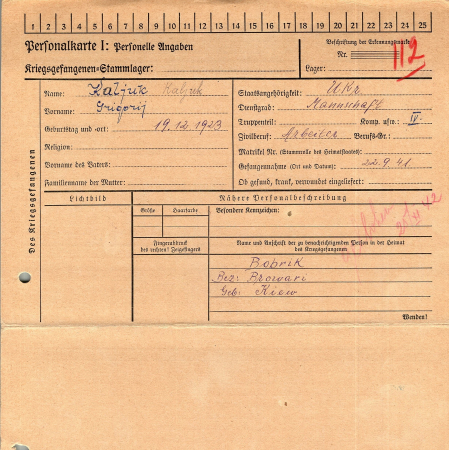 1 2 3 4 5 6 7 8 9 10 11 12 13 14 15 16 17 18 19 20 21 22 23 24 25
Personalkarte I: Personelle Angaben
Kriegsgefangenen-Stammlager:
Beschriftung der Erkennungsmarke
Nr. 112
Lager:
Des Kriegsgefangenen
Name: Kaljuk Kaljuk
Vorname: Grigorij
Geburtstag und -ort: 19.12.1923
Religion:
Vorname des Vaters:
Familienname der Mutter:
Staatsangehörigkeit: Ukr
Dienstgrad: Mannschaft
Truppenteil: Komp. usw.: IV.
Zivilberuf: Arbeiter Berufs-Gr.:
Matrikel Nr. (Stammrolle des Heimatstaates):
Gefangennahme (Ort und Datum): 22.9.41.
Ob gesund, krank, verwundet eingeliefert:
Lichtbild
Nähere Personalbeschreibung
Größe
Haarfarbe
Besondere Kennzeichen:
Fingerabdruck
des rechten! Zeigefingers
Name und Anschrift der zu benachrichtigenden Person in der Heimat
des Kriegsgefangenen
Bobrik
Bez: Browari
Geb: Kiew
Wenden!